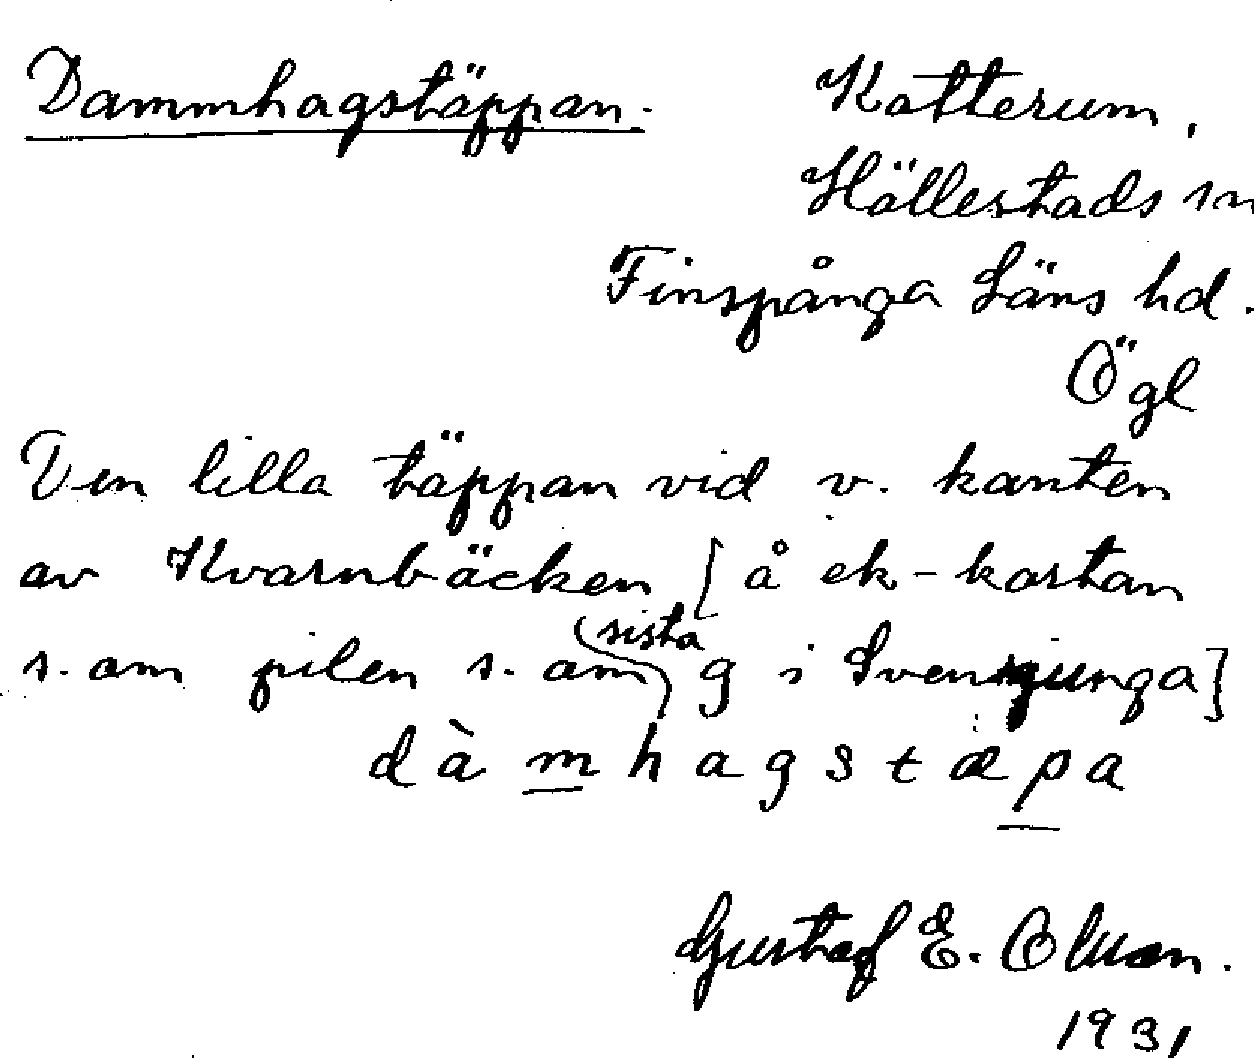 Dammhagstäppan. Katterum,
Hällestads sn
Finspånga Läns hd.
Ögl
Den lilla täppan vid v. kanten
av Kvarnbäcken [å ek-kartan
s. om pilen s. om sista g i Svensjunga]
dàmhagstæpa
Gustaf E. Olson.
1931